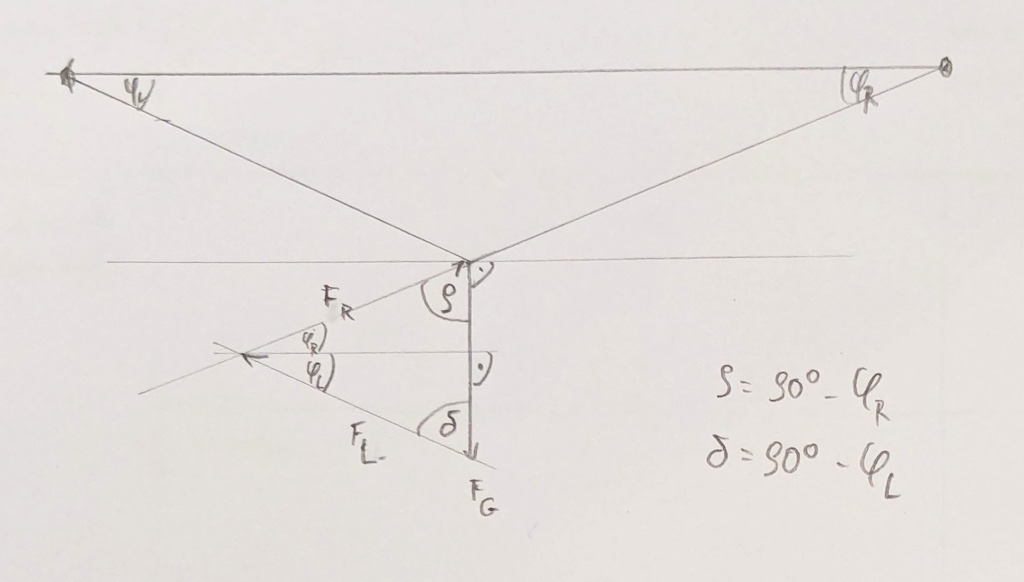 φ_L
φ_R
F_R
ρ
φ_R
φ_L
δ
F_L
F_G
ρ = 90° - φ_R
δ = 90° - φ_L